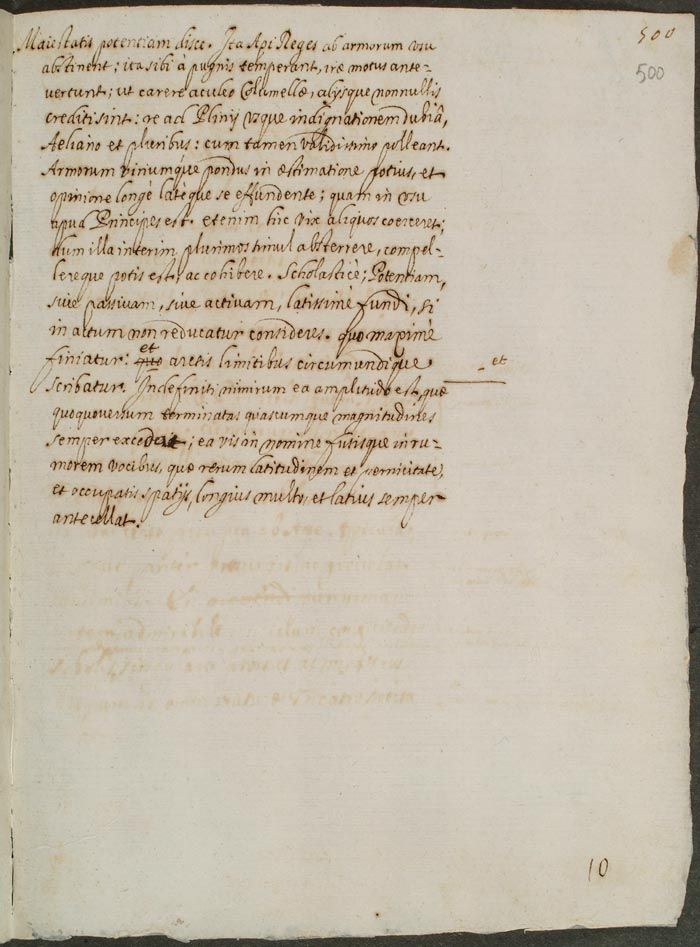 500
500
Maiestatis potentiam disce. Ita Api Reges ab armorum usu
abstinent; ita sibi à pugnis temperant, iræ motus ante-
vertunt; ut carere aculeo Columellæ, alijsque nonnullis
crediti sint: re ad Plinij usque indignationem dubiâ,
Aeliano et pluribus: cum tamen validissimo polleant.
Armorum viriumque pondus in æstimatione potius, et
opinione longè latèque se effundente; quam in usu
apud Principes est. etenim hic vix aliquos coerceret;
dum illa interim plurimos simul absterrere, compel-
lereque potis est, ac cohibere. Scholasticè; Potentiam,
sive passivam, sive activam, latissime fundi, si
in actum non reducatur consideres. quo maximè
finiatur: quo et arctis limitibus circumundique
- et
scribatur. Indefiniti nimirum ea amplitudo est, quæ
quoquoversum terminatas quascumque magnitudines
semper excedat; ea vis in nomine fusisque in ru-
morem vocibus, quæ rerum latitudinem et pernicitate,
et occupatis spatijs, longius multo, et latius semper
antecellat.
10